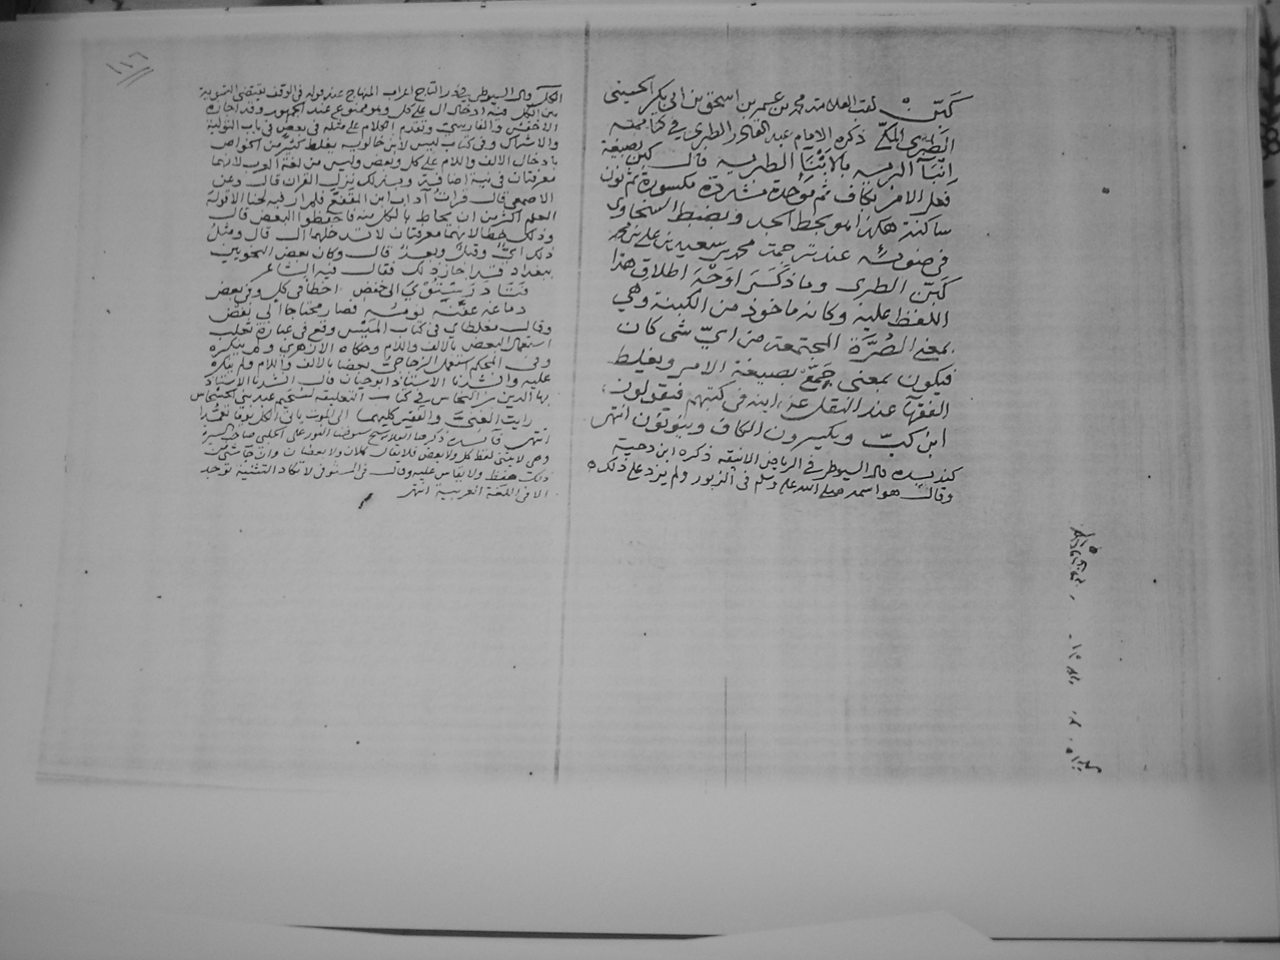 كَبِّن لقب العلامة محمد بن عيسى بن اسحق بن ابي بكر الحسيني
الطبري المكي ذكره الامام عبد القادر الطبري في كتابه
انباء البريه بالابناء الطبريه قال كبن بصيغة
فعل الامر بكاف ثم موحدة مشددة مكسورة ثم نون
ساكنة هكذا هو بخط الجد وبضبط السخاوي
في ضوئه عند ترجمة محمد بن سعيد بن علي بن محمد
كبن الطبري وما ذكر اوجه اطلاق هذا
اللفظ عليه وكانه ماخوذ من الكبنة وهي
بمعنى الصرة المجتمعة من اي شي كان
فيكون بمعنى جمع بصيغة الامر ويغلط
الفقهآ عند النقل عن ابنه في كتبهم فيقولون
ابن كب ويكسرون الكاف وينونون انتهى
كنديده قال السيوطي في الرياض الانيقه ذكره ابن دحية
وقال هو اسمه صلى الله عليه وسلم في الزبور ولم يزد على ذلك
الكل قال السيوطي في در التاج اعراب المنهاج عند قوله في الوقف يقتضي التسوية
بين الكل فيه ادخال ال على كل وهو ممنوع عند الجمهور وقد اجازه
الاخفش والفارسي وتقدم الكلام على مثله في بعض في باب التولية
والاشراك وفي كتاب ليس لابن خالويه يغلط كثير من الخواص
بادخال الالف واللام على كل وبعض وليس من لغة العرب لانهما
معرفتان في نية اضافة وبذلك نزل القران قال وعن
الاصمعي قال قرات آداب ابن المقفع فلم ار فيه لحنا الا قوله
العلم اكثر من ان يحاط بالكل منه فاحفظوا البعض قال
وذلك خطا لانهما معرفتان لا تدخلهما ال قال ومثل
ذلك اي وقبل وبعد قال وكان بعض النحويين
ببغداد قد اجاز ذلك فقال فيه الشاعر
اخطا في كل وفي بعض
دماغه عفنه نومه فصار محتاجا الى بعض
وقال مغلطاي في كتاب الميس وقع في عبارة ثعلب
استعمال البعض بالالف واللام وحكاه الازهري ولم ينكره
وفي المحكم استعمل الزجاجي بعضا بالالف واللام ولم ينكره
عليه وانشدنا الاستاذ ابو حيان قال انشدنا الاستاذ
بهاالدين بن النحاس في كتاب التعليقه لسحيم عبد بني الحسحاس
رايت الغني والفقير كليهما الى الموت ياتي الكل
انتهى
وهي لا يثنى لفظ كل ولا بعض فلا يقال كلان ولا بعضان وان
ذلك حفظ ولا يقاس عليه وقال لا تكاد التثنية توجد
الا في اللغة العربية انتهى